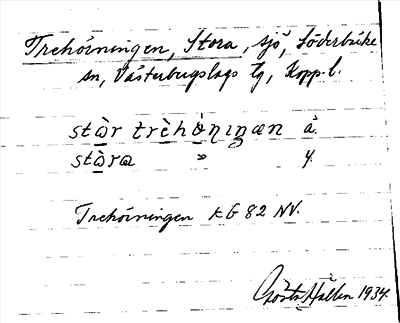 Trehörningen, Stora, sjö, Söderbärke
sn, Västerbergslags tg, Kopp. l.
stòr trèhö̀ṇiŋæn ä.
stòra " y.
Trehörningen KG 82 NV.
Gösta Hallén 1934.